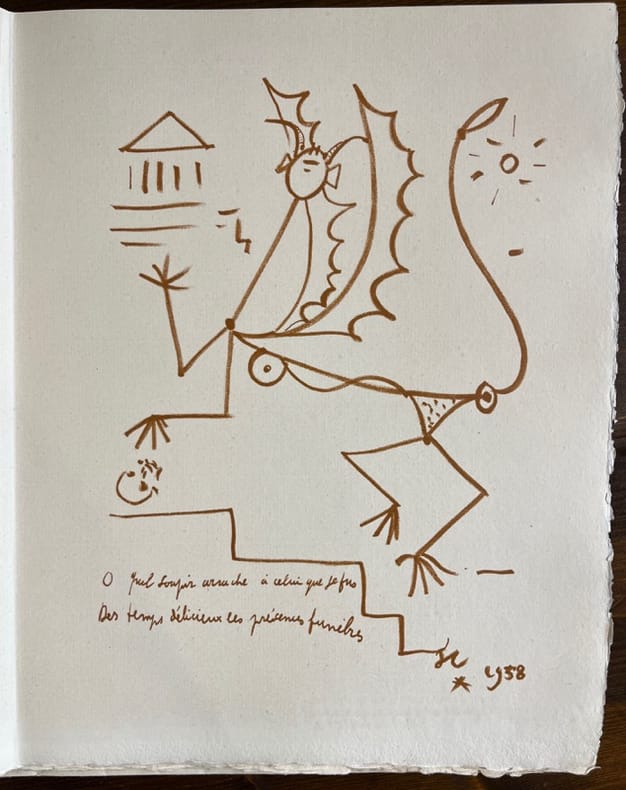 O quel soupir arrache à celui que je fus
Des temps délicieux les présences funèbres
JC
* 1958